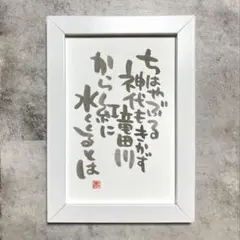 ちはやぶる
神代もきかず
竜田川
からくれ紅に
水くくるとは